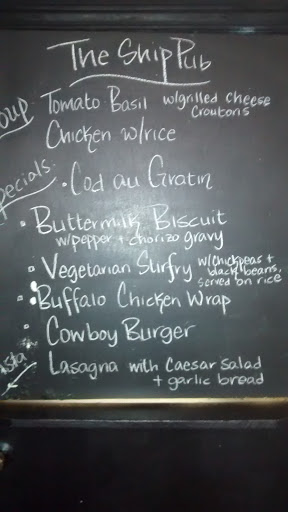 The Ship Pub
oup Tomato Basil w/grilled cheese
croutons
Chicken w/rice
pecials
• Cod au Gratin
• Buttermilk Biscuit
w/pepper + chorizo gravy
• Vegetarian Stirfry w/chickpeas +
black beans,
served on rice
• Buffalo Chicken Wrap
• Cowboy Burger
asta Lasagna with Caesar Salad
+ garlic bread